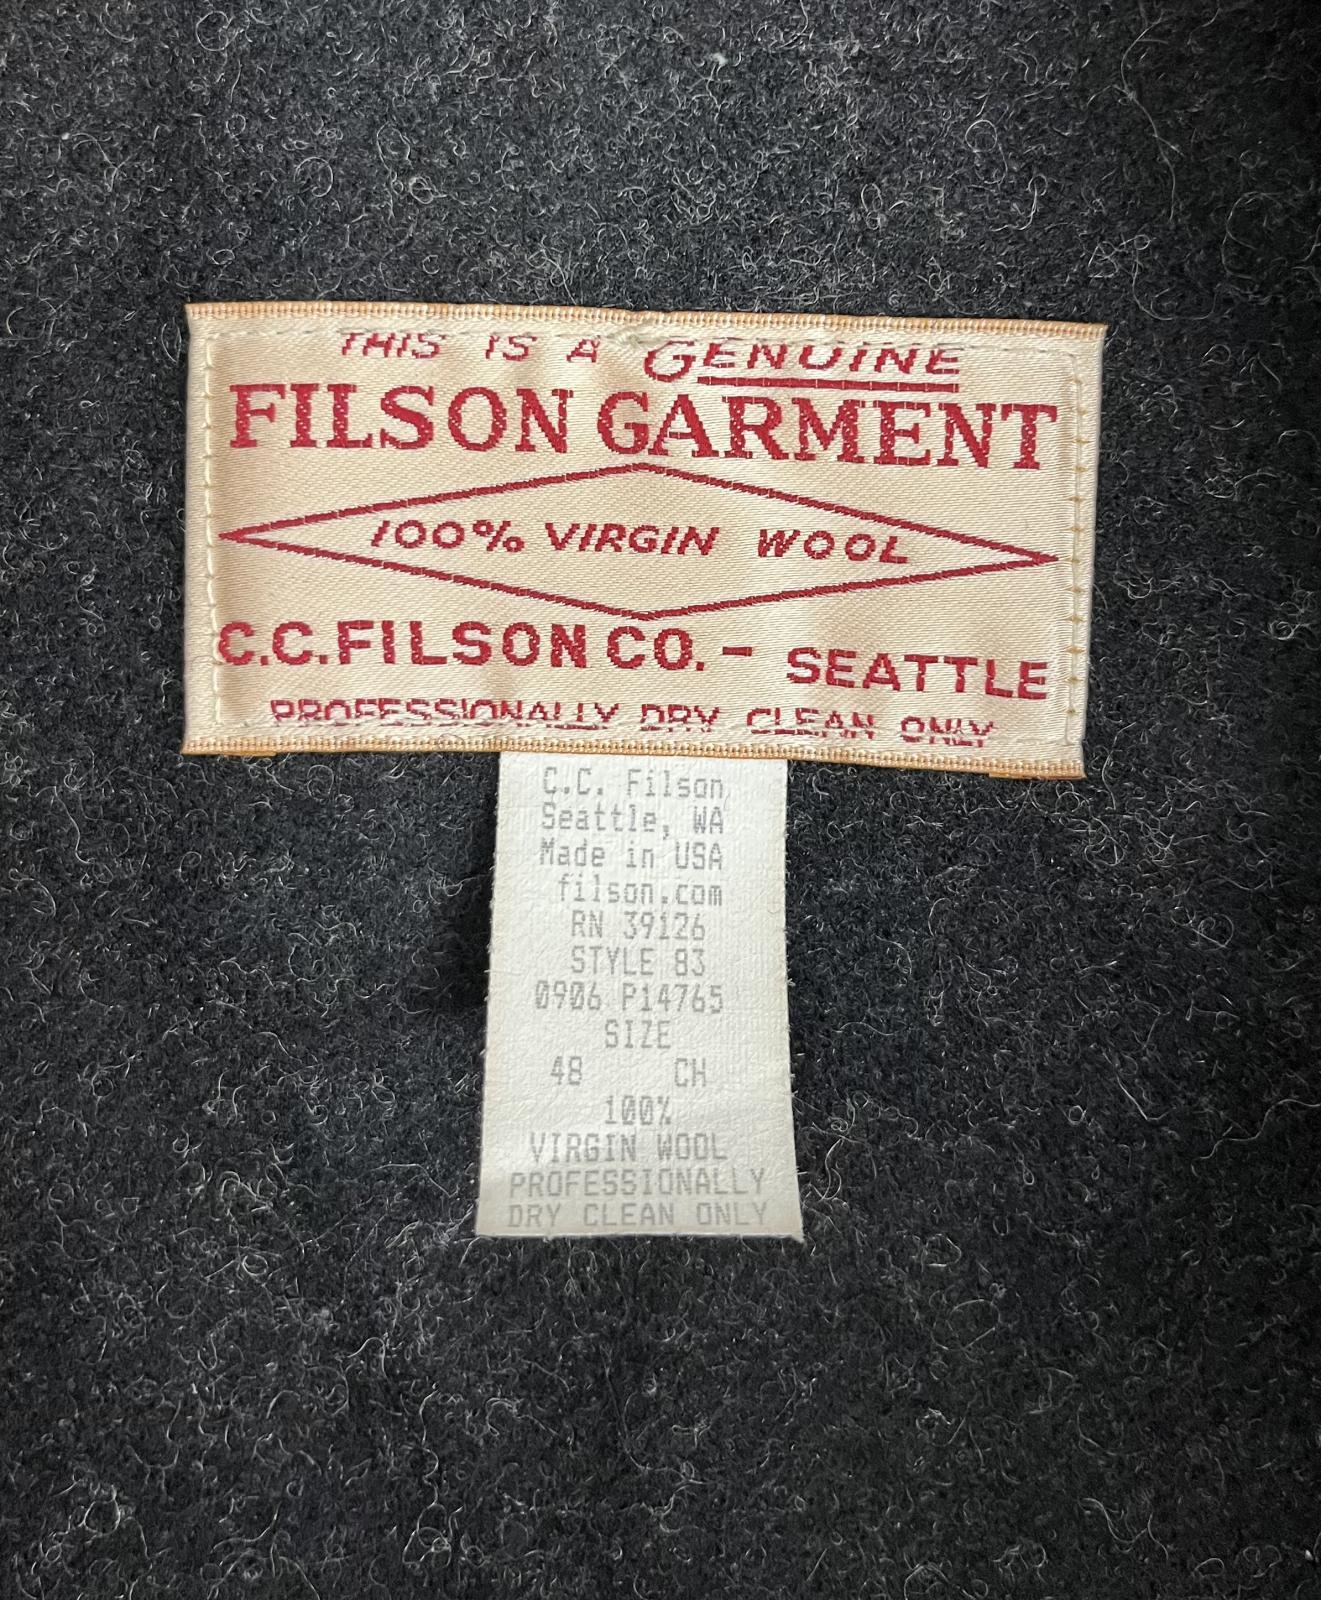 THIS IS A GENUINE
FILSON GARMENT
100% VIRGIN WOOL
C.C. FILSON CO. - SEATTLE
PROFESSIONALLY DRY CLEAN ONLY
C.C. Filson
Seattle, WA
Made in USA
filson.com
RN 39126
STYLE 83
0906 P14765
SIZE
48 CH
100%
VIRGIN WOOL
PROFESSIONALLY
DRY CLEAN ONLY